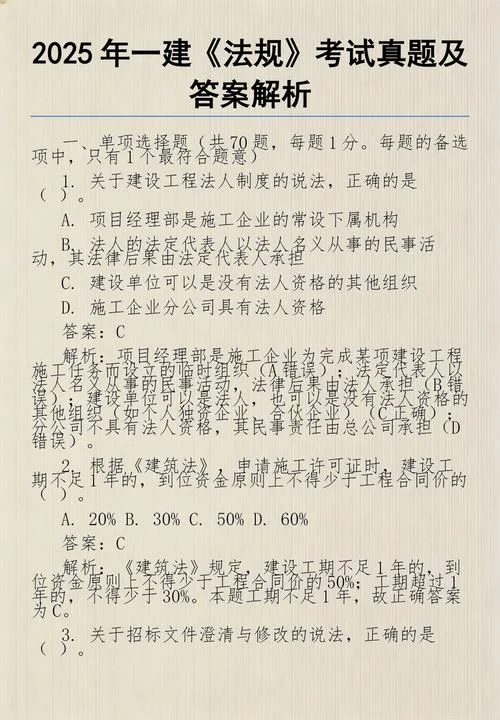 2025年一建《法规》考试真题及
答案解析
一、单项选择题（共70题，每题1分。每题的备选
项中，只有1个最符合题意）
1. 关于建设工程法人制度的说法，正确的是
（ ）。
A. 项目经理部是施工企业的常设下属机构
B. 法人的法定代表人以法人名义从事的民事活
动，其法律后果由法定代表人承担
C. 建设单位可以是没有法人资格的其他组织
D. 施工企业分公司具有法人资格
答案：C
解析：项目经理部是施工企业为完成某项建设工程
施工任务而设立的临时组织（A错误）；法定代表人以
法人名义从事的民事活动，法律后果由法人承担（B错
误）；建设单位可以是法人，也可以是没有法人资格的
其他组织（如个人独资企业、合伙企业）（C正确）；
分公司不具有法人资格，其民事责任由总公司承担（D
错误）。
2. 根据《建筑法》，申请施工许可证时，建设工
期不足1年的，到位资金原则上不得少于工程合同价的
（ ）。
A. 20% B. 30% C. 50% D. 60%
答案：C
解析：《建筑法》规定，建设工期不足1年的，到
位资金原则上不得少于工程合同价的50%；工期超过1
年的，不得少于30%。本题工期不足1年，故正确答案
为C。
3. 关于招标文件澄清与修改的说法，正确的是
（ ）。